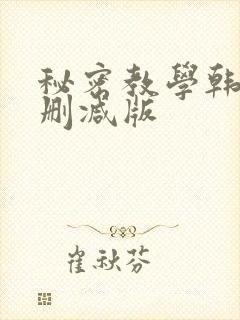 秘密教學韩
删减版
崔秋芬